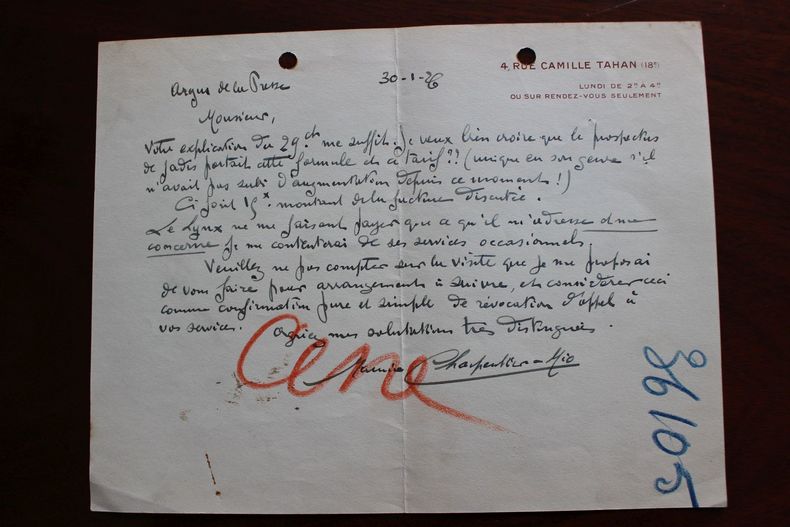 4, RUE CAMILLE TAHAN (18e)
LUNDI DE 2H A 4H
OU SUR RENDEZ-VOUS SEULEMENT
30-1-26
Argus de la Presse
Monsieur,
Votre explication du 29 ct me suffit. Je veux bien croire que le prospectus
de jadis portait cette formule et ce tarif ?? (unique en son genre s'il
n'avait pas subi d'augmentation depuis ce moment !)
Ci joint 15 x montant de la facture discutée.
Le Lynx ne me faisant payer que ce qu'il m'adresse et me
concerne je me contenterai de ses services occasionnels
Veuillez ne pas compter sur la visite que je me proposai
de vous faire pour arrangements à suivre, et considérer ceci
comme confirmation pure et simple de révocation d'appel à
vos services. Agréez mes salutations très distinguées.
Maurice Charpentier-Mio
36105